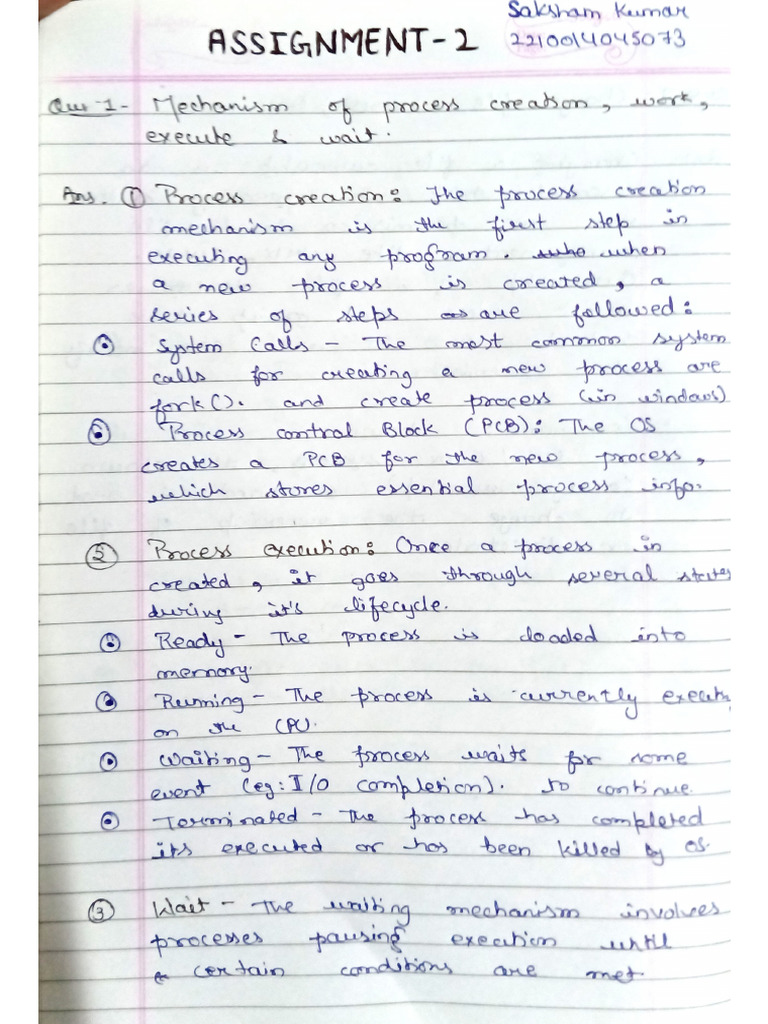 Saksham Kumar
ASSIGNMENT-2
2210014045073
Que 1- Mechanism of process creation, work,
execute & wait.
Ans. ① Process creation: The process creation
mechanism is the first step in
executing any program. when
a new process is created, a
series of steps are followed:
System Calls - The most common system
calls for creating a new process are
fork(). and create process (in windows)
Process control Block (PCB): The OS
creates a PCB for the new process,
which stores essential process info.
② Process execution: Once a process in
created, it goes through several states
during it's lifecycle.
Ready - The process is loaded into
memory.
Running - The process is currently execut
on the CPU.
Waiting - The process waits for some
event (eg: I/O completion). to continue.
Terminated - The process has completed
its executed or has been killed by OS.
③ Wait - The waiting mechanism involves
processes pausing execution until
certain conditions are met.